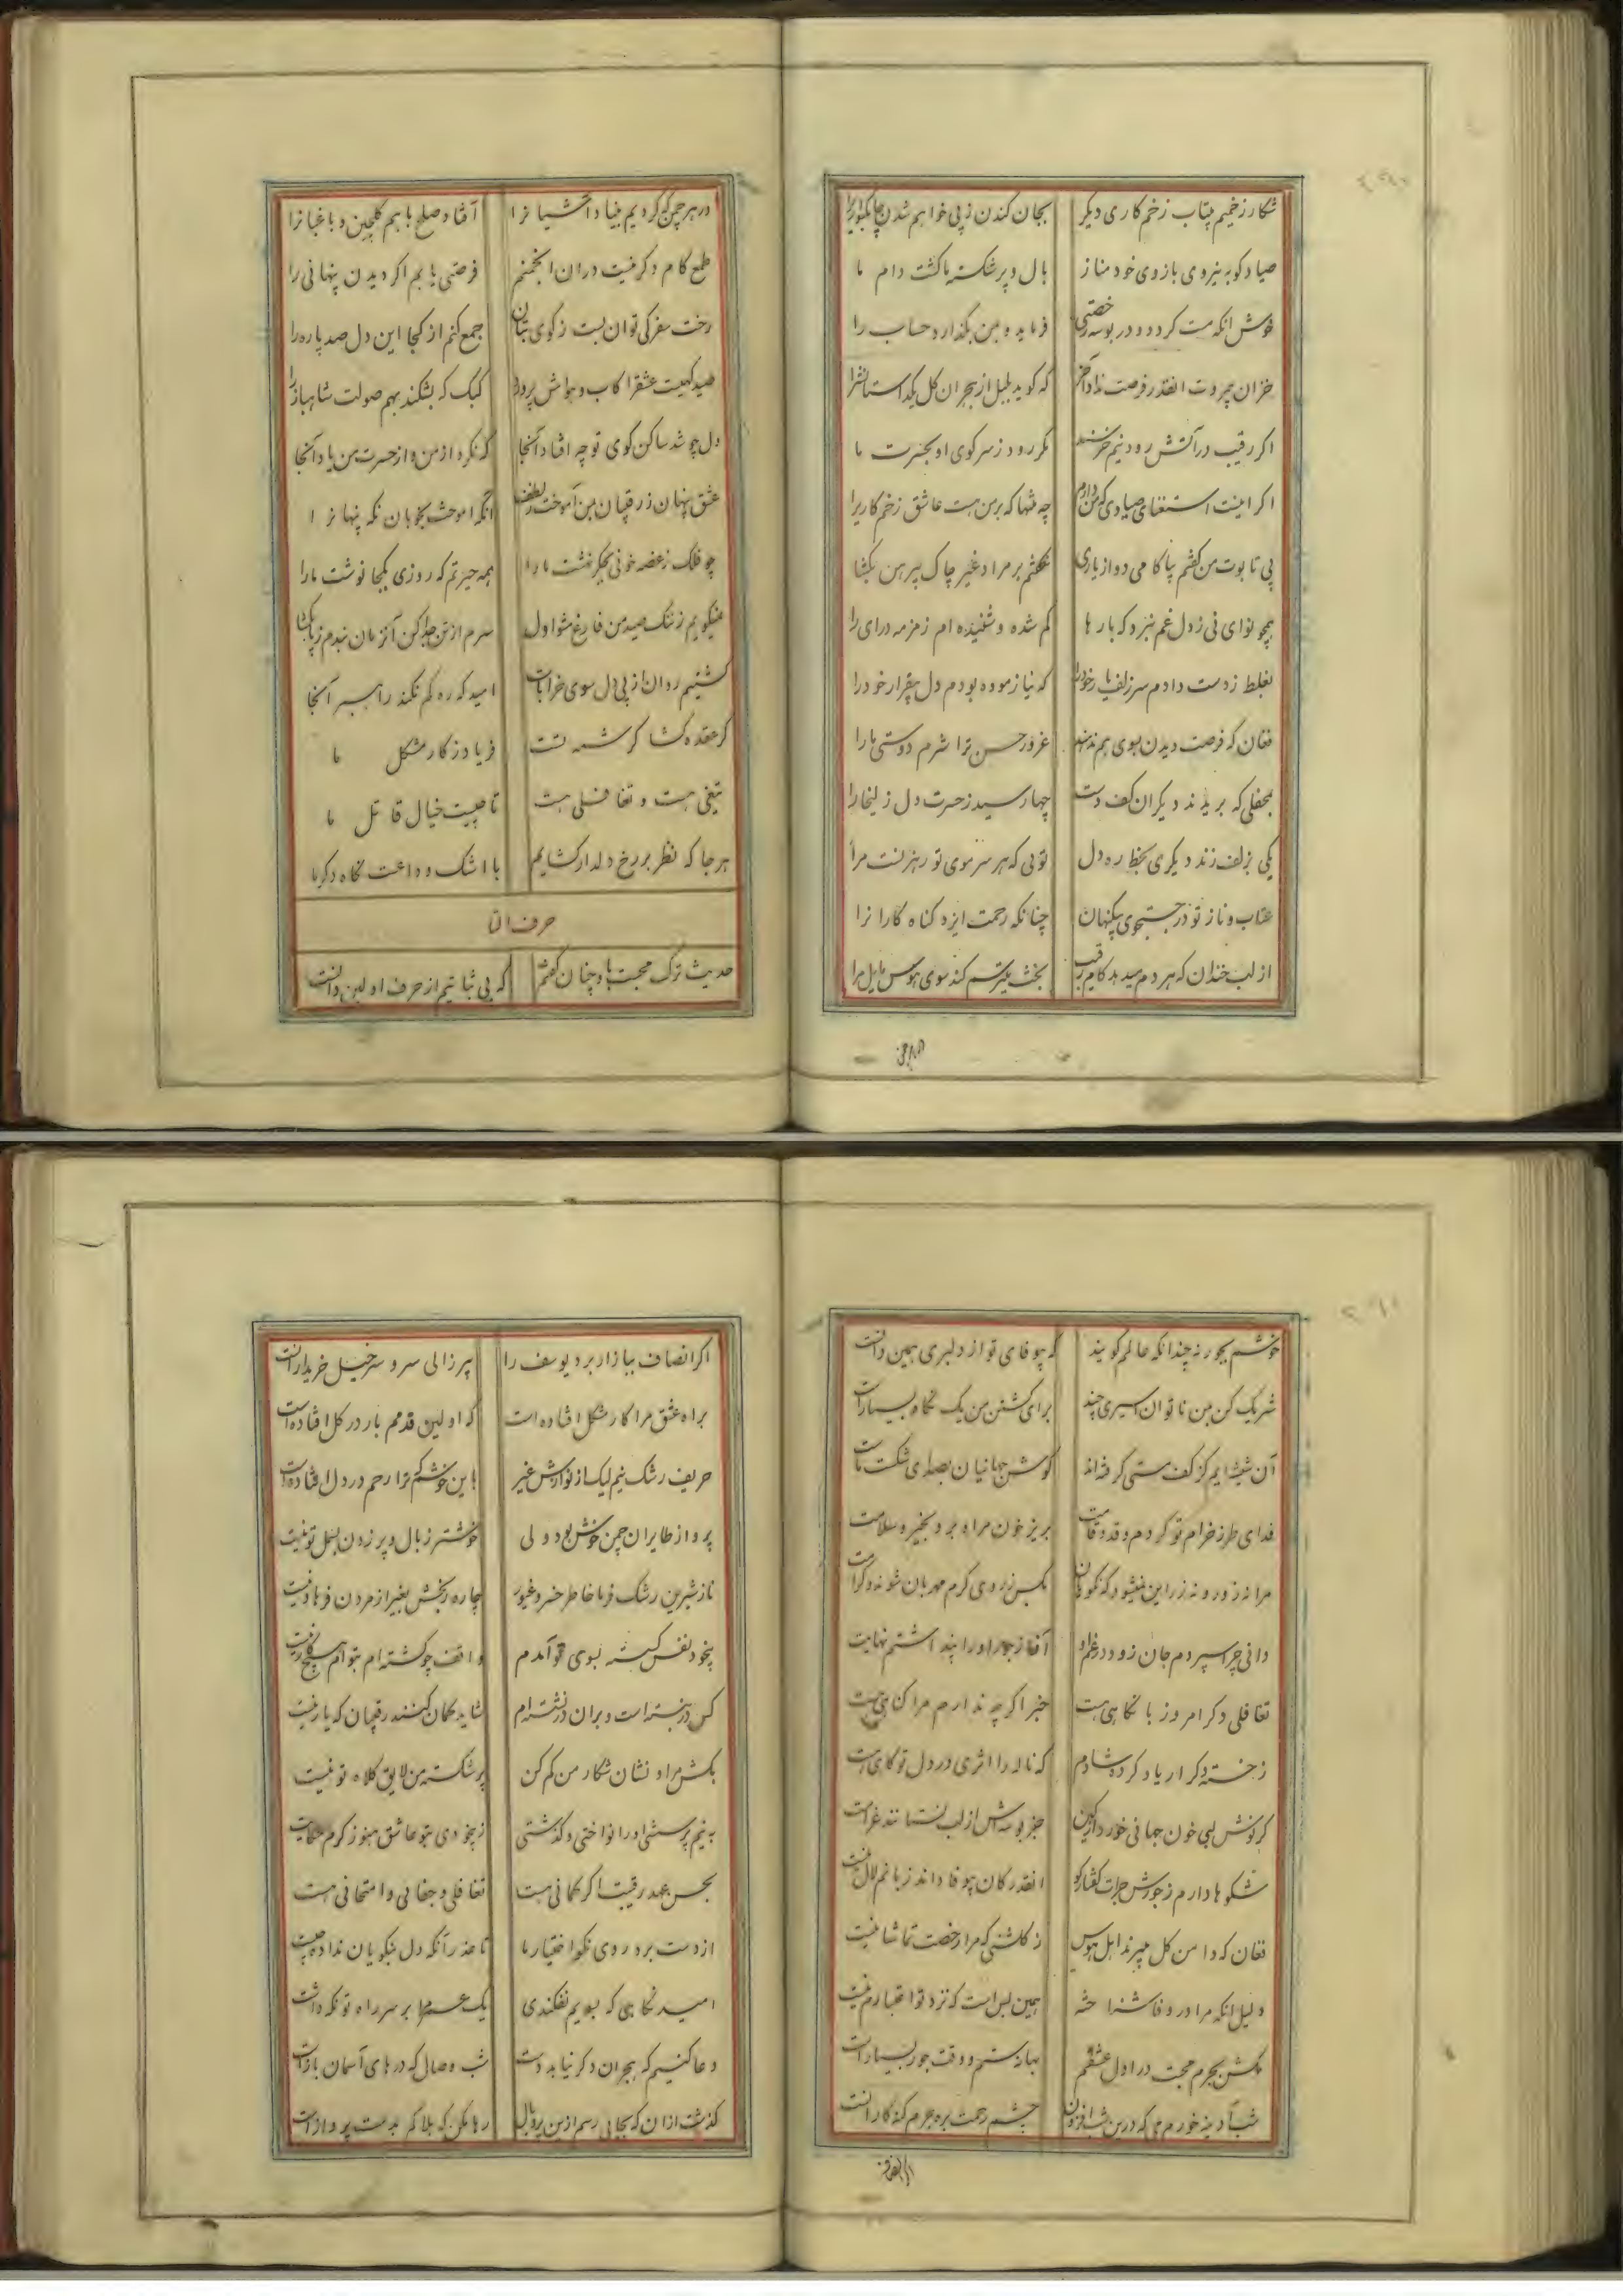 شکار زخمیم بیتاب زخم کاری دیکر بجان کندن ز پی خواهم شدن
صیاد کو به نیروی بازوی خود مناز بال و پر شکسته ما کشت دام ما
خوش انکه مست کردد و در بوسه رخصتی فرماید و بمن بگذارد حساب را
خزان بیمروت انقدر فرصت نداد آخر که کوید بلبل از هجران کل
اکر رقیب در آتش رود نیم خرسند مکر رود ز سر کوی او بحسرت ما
اکر اینست استغنای صیادی که من دارم چه منتها که بر من هست عاشق زخم کاریرا
پی تابوت من کفتم بیا کامی دو از یاری نکفتم بر مراد غیر چاک پیرهن بکشا
همچو نوای نی ز دل غم نبرد که بارها کم شده و شنیده ام زمزمه درای را
بغلط ز دست دادم سر زلف یار خود را که نیازموده بودم دل بیقرار خود را
فغان که فرصت دیدن بسوی هم ندهد غرور حسن ترا شرم دوستی ما را
بمحفلی که بریدند دیکران کف دست چها رسید ز حسرت دل زلیخا را
یکی بزلف زند دیکری بخط ره دل تویی که هر سر موی تو رهزنست مرا
عتاب و ناز تو در جستجوی بیکنهان چنانکه رحمت ایزد کناه کارانرا
از لب خندان که هر دم میدهد کام رقیب بخت تبسم کند سوی هوس مایل مرا
در هر چمن که کردیم بنیاد آشیانرا آفتاد صلح با هم کلچین و باغبانرا
طمع کام دکر نیست دران انجمنم فرصتی یابم اکر دیدن پنهانی را
رخت سفر کی توان بست ز کوی بتان جمع کنم از کجا این دل صد پاره را
صید کهیت عشقرا کاب و هواش پرورد کبک که بشکند بهم صولت شاهباز را
دل چو شد ساکن کوی تو چه افتاد آنجا که نکرد از من و از حسرت من یاد آنجا
عشق پنهان ز رقیبان بمن آموخت بلطف آنکه آموخت بخوبان نکه پنهانرا
چو فلک ز غصه خونی بجکر نهشت ما را بچه حیرتم که روزی بکجا نوشت ما را
نمیکویم ز ننک صید من فارغ شو اول سرم از تن جدا کن آنزمان بندم ز پا بکشا
کشتیم روان از پی دل سوی خرابات امید که ره کم نکند راهبر آنجا
کر عقده کشا کرشمه تست فریاد ز کار مشکل ما
تیغی هست و تغافلی هست تا چیست خیال قاتل ما
هر جا که نظر بر رخ دلدار کشایم با اشک وداعست نکاه دکر ما
حرف التا
حدیث ترک محبت باو چنان کفتم که بی ثباتیم از حرف اولین دانست
خوشم بجور نه چندانکه عالم کویند که بیوفای تو از دلبری همین دانست
شریک کن بمن ناتوان اسیری چند برای کشتن من یک نکاه بسیارست
آن شیشه ایم کز کف مستی کرفته اند کوش جهانیان بصدای شکست ماست
فدای طرز خرام تو کردم و قد و قامت بریز خون مرا و برو بخیر و سلامت
مرا نه زور و نه زر این نمیشود که نکویان بکس ز روی کرم مهربان شوند و کرامت
دانی چرا سپردم جان زود در غم او آغاز جور او را پنداشتم نهایت
تغافلی دکر امروز با نکاهی هست خبر اکرچه ندارم مرا کناهی هست
ز خسته دکر ار یاد کرده شادم که ناله را اثری در دل تو کاهی هست
کر نوش لبی خون جهانی خورد ازکین جز بوسه اش از لب نستانند غرامت
شکوها دارم ز جورش جرات کفتار کو انقدر کان بیوفا داند زبانم لال نیست
فغان که دامن کل میبرند اهل هوس ز کلشنی که مرا رخصت تماشا نیست
دلیل انکه مرا در وفا شناخته همین بس است که نزد تو اعتبارم نیست
مکش بجرم محبت در اول عشقم بهانه ستم و وقت جور بسیارست
شب آدینه خورم می که درین شب افزون چشم رحمت بره جرم کنه کارانست
اکر انصاف ببازار برد یوسف را پیر زالی سر و سرخیل خریدارانست
براه عشق مرا کار مشکل افتاده است که اولین قدمم بار در کل افتاده است
حریف رشک نیم لیک از نوازش غیر باین خوشم که ترا رحم در دل افتاده است
پرواز طایران چمن خوش بود ولی خوشتر ز بال و پر زدن بسمل تو نیست
ناز شیرین رشک فرما خاطر خسرو غیور چاره رنجش بغیر از مردن فرهاد نیست
بیخود نفس کسسته بسوی تو آمدم واقف چو کشته ام بتوام هیچ کار نیست
کس در نبسته است و بران در نشسته ام شاید کمان کنند رقیبان که یار نیست
بکش مرا و نشان شکار من کم کن پر شکسته من لایق کلاه تو نیست
به نیم پرسشی او را نواختی و کذشتی ز بیخودی بتو عاشق هنوز کرم حکایت
بحسن عهد رقیبت اکر کمانی هست تغافلی و جفائی و امتحانی هست
از دست برد روی نکو اختیار ما تا عذر آنکه دل بنکویان نداده چیست
امید نکاهی که بسویم نفکندی یک عمر مرا بر سر راه تو نکه داشت
دعا کنیم که هجران دکر نیابد دست شب وصال که درهای آسمان بازست
کذشت ازان که بجایی رسم ازین پر و بال رها مکن که هلاکم بدست پروازست